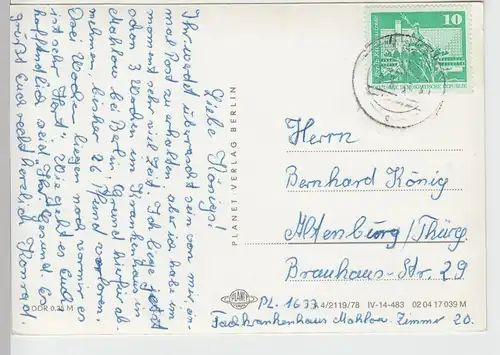 Liebe Königs!
Ihr werdet überrascht sein von mir ein-
mal Post zu erhalten aber ich habe im
moment sehr viel Zeit. Ich liege jetzt
schon 3 Wochen im Krankenhaus in
Mahlow bei Berlin, Grund hierfür ab-
nehmen, bisher 26 Pfund verloren.
Drei Wochen liegen noch vor mir es
ist sehr Hart. Wie geht es Euch
hoffentlich seid Ihr Gesund. Es
grüßt Euch recht herzlich Konrad.
PLANET-VERLAG BERLIN
10
DEUTSCHE DEMOKRATISCHE REPUBLIK
Herrn
Bernhard König
Altenburg/Thürg
Brauhaus-Str. 29
PLANET
DDR 0,25 M
A 4/2119/78 IV-14-483 02 04 17 039 M
PL. 1633
Fachkrankenhaus Mahlow. Zimmer 20.